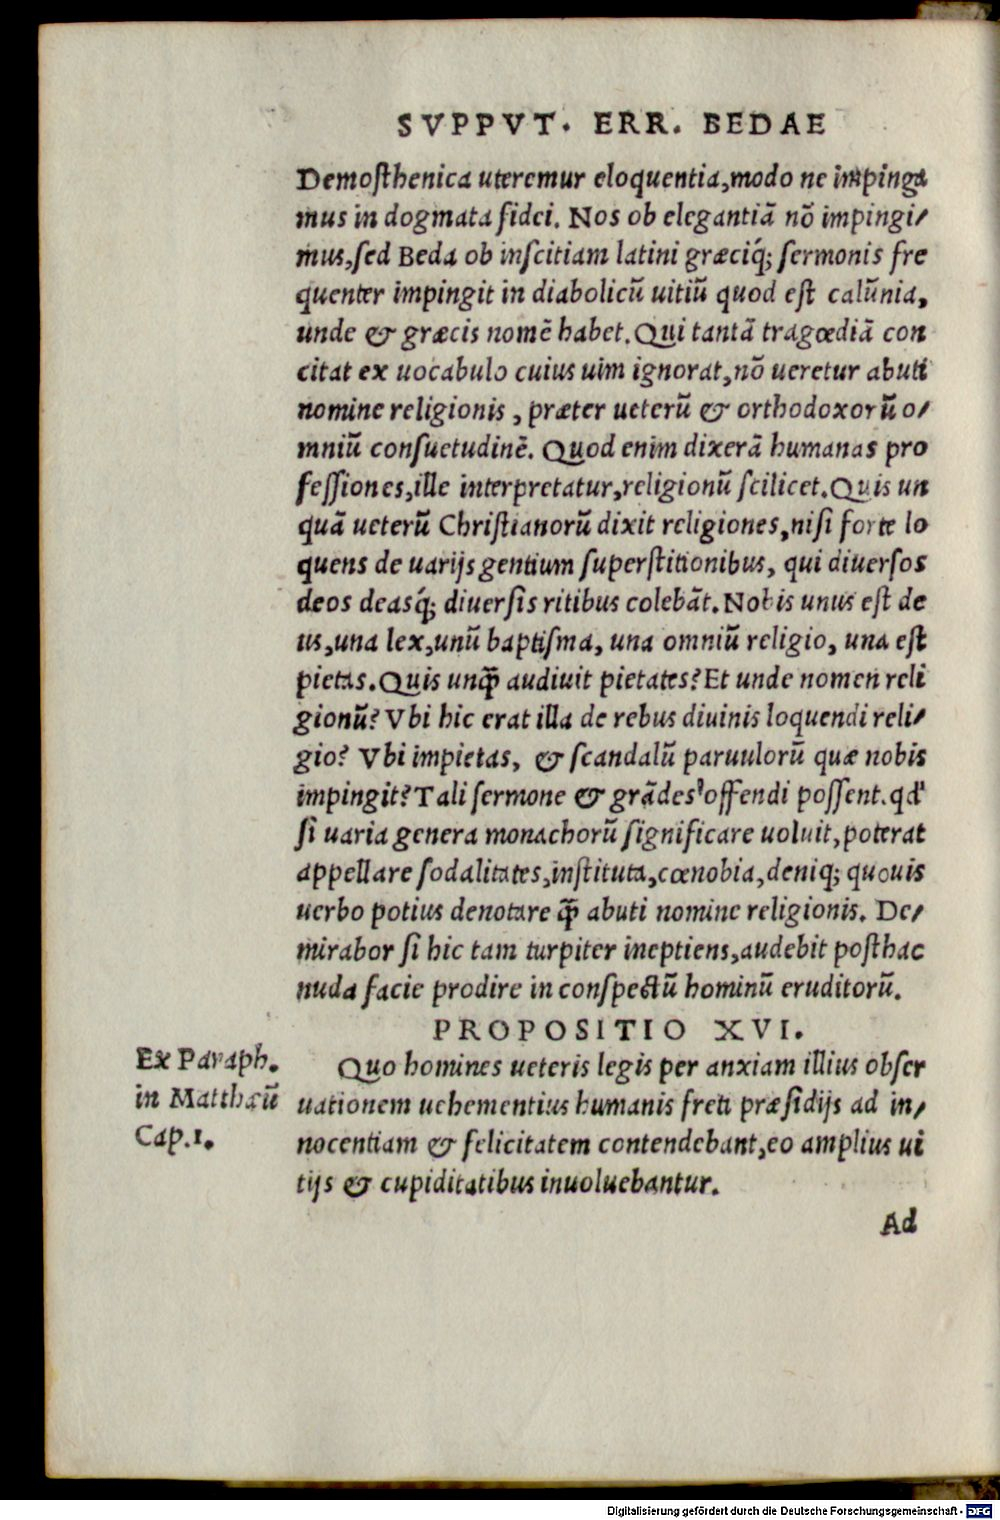 SVPPVT. ERR. BEDAE
Demosthenica uteremur eloquentia,modo ne impinga
mus in dogmata fidei. Nos ob elegantiā nō impingi/
mus,sed Beda ob inscitiam latini græciq́; sermonis fre
quenter impingit in diabolicū uitiū quod est calūnia,
unde & græcis nomē habet. Qui tantā tragœdiā con
citat ex uocabulo cuius uim ignorat,nō ueretur abuti
nomine religionis, præter ueterū & orthodoxorū o/
mniū consuetudinē. Quod enim dixerā humanas pro
fessiones,ille interpretatur,religionū scilicet. Quis un
quā ueterū Christianorū dixit religiones,nisi forte lo
quens de uarijs gentium superstitionibus, qui diuersos
deos deasq́; diuersis ritibus colebāt. Nobis unus est de
us,una lex,unū baptisma, una omniū religio, una est
pietas. Quis unq̄ audiuit pietates? Et unde nomen reli
gionū? Vbi hic erat illa de rebus diuinis loquendi reli/
gio? Vbi impietas, & scandalū paruulorū quæ nobis
impingit? Tali sermone & grādes offendi possent. qd'
si uaria genera monachorū significare uoluit,poterat
appellare sodalitates,instituta,cœnobia,deniq; quouis
uerbo potius denotare q̄ abuti nomine religionis. De/
mirabor si hic tam turpiter ineptiens,audebit posthac
nuda facie prodire in conspectū hominū eruditorū.
PROPOSITIO XVI.
Ex Paraph.
in Matthæū
Cap.1.
Quo homines ueteris legis per anxiam illius obser
uationem uehementius humanis freti præsidijs ad in/
nocentiam & felicitatem contendebant,eo amplius ui
tijs & cupiditatibus inuoluebantur.
Ad
Digitalisierung gefördert durch die Deutsche Forschungsgemeinschaft - DFG